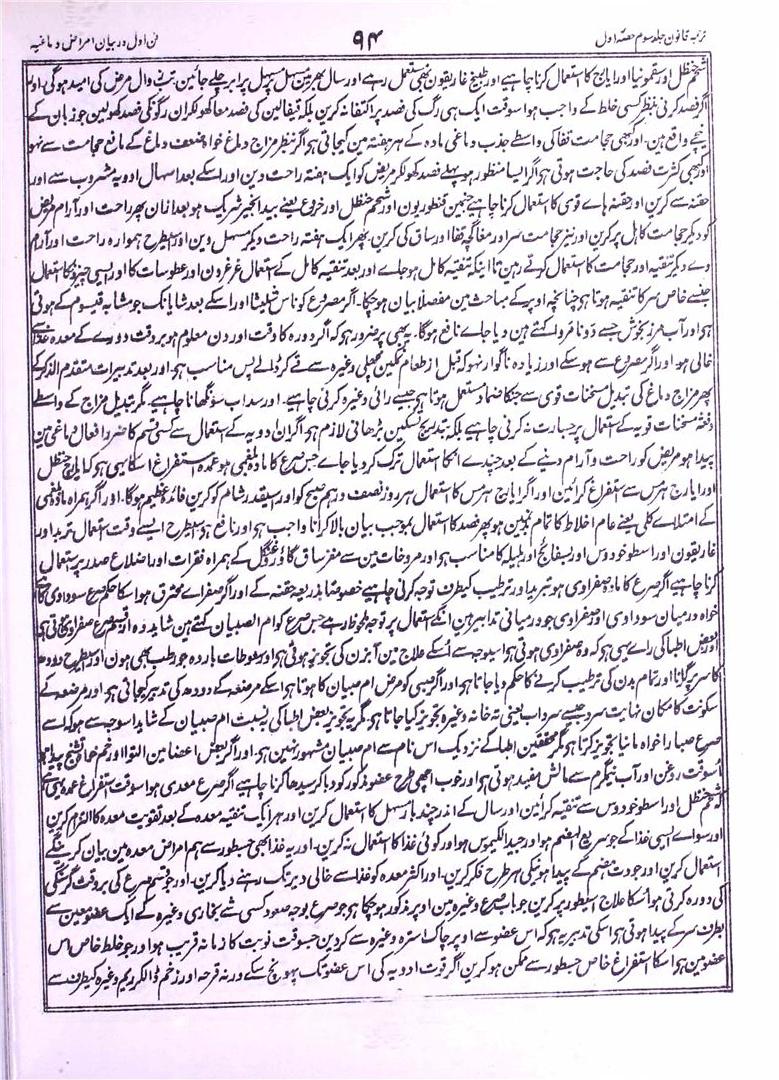 ترجمہ قانون جلد سوم حصہ اول ۹۴ فن اول در بیان امراض دماغیہ
شحم حنظل اور سقمونیا اور ایارج کا استعمال کرنا چاہیے اور طبیخ غاریقون بھی مستعمل رہے اور سال بھر میں مسہل پر مسہل برابر چلے جائین۔ تب زوال مرض کی امید ہوگی۔ اور
اگر فصد کرنی بنظر کسی خلط کے واجب ہو اسوقت ایک ہی رگ کی فصد پر اکتفا نہ کرین بلکہ قیفالین کی فصد معاً کھولکر ان رگونکی فصد کھولین جو زبان کے
نیچے واقع ہین۔ اور کبھی حجامت قفا کی واسطے جذب دماغی مادہ کے ہر ہفتہ مین کیجاتی ہو اگر بنظر مزاج دماغ خواہ ضعف دماغ کے مانع حجامت سے نہو
اور کبھی کثرت فصد کی حاجت ہوتی ہو اگر ایسا منظور ہو پہلے فصد کھولکر مریض کو ایک ہفتہ راحت دین اور اسکے بعد اسہال ادویہ مشروب سے اور
حقنہ سے کرین اور حقنہ ہاے قوی کا استعمال کرنا چاہیے جنمین قنطوریون اور شحم حنظل اور خروع یعنے بید انجیر شریک ہو بعد ازان پھر راحت اور آرام مریض
کو دیکر حجامت کاہل پر کرین اور نیز حجامت سر اور مغاکچہ قفا اور ساق کی کرین۔ پھر ایک ہفتہ راحت دیکر مسہل دین اور اسیطرح ہموارہ راحت اور آرام
دے دیکر تنقیہ اور حجامت کا استعمال کرتے رہین تا اینکہ تنقیہ کامل ہو جاے اور بعد تنقیہ کامل کے استعمال غرغرون اور عطوسات کا اور ایسی چیزونکا استعمال
جنسے خاص سر کا تنقیہ ہوتا ہو چنانچہ اوپر کے مباحث مین مفصلاً بیان ہو چکا۔ اگر مصروع کو ناس شلیثا اور اسکے بعد شابانک جو مشابہ قیسوم کے ہوتی
ہو اور آب مرزنجوش جسے دونا مروا کہتے ہین دیا جاے نافع ہوگا۔ یہ بھی ضرور ہو کہ اگر دورہ کا وقت اور دن معلوم ہو بروقت دورے کے معدہ غذا سے
خالی ہو اور اگر مصروع سے ہو سکے اور زیادہ ناگوار نہو کہ قبل از طعام نمکین مچھلی وغیرہ سے قے کر ڈالے پس مناسب ہو۔ اور بعد تدبیرات متقدم الذکر کے
پھر مزاج دماغ کی تبدیل مسخنات قوی سے جنکا ضماد مستعمل ہوتا ہو جیسے رائی وغیرہ کرنی چاہیے۔ اور سداب سونگھانا چاہیے۔ مگر تبدیل مزاج کے واسطے
دفعۃً مسخنات قویہ کے استعمال پر جسارت نہ کرنی چاہیے بلکہ بتدریج تسکین بڑھانی لازم ہو اگر ان ادویہ کے استعمال سے کسی قسم کا ضرر افعال دماغی مین
پیدا ہو مریض کو راحت و آرام دینے کے بعد چندے انکا استعمال ترک کر دیا جاے جس صرع کا مادہ بلغمی ہو عمدہ استفراغ اسکا یہی ہو کہ ایارج حنظل
اور ایارج ہرمس سے استفراغ کرائین اور اگر ایارج ہرمس کا استعمال ہر روز نصف درہم صبح کو اور اسیقدر شام کو کرین فائدہ عظیم ہوگا۔ اور اگر ہمراہ مادہ بلغمی
کے امتلاے کلی یعنے عام اخلاط کا تمام بدن مین ہو پھر فصد کا استعمال بموجب بیان بالا کرانا واجب ہو اور نافع ہو اسیطرح ایسے وقت استعمال تربد اور
غاریقون اور اسطوخودوس اور بسفائج اور ہلیلہ کا مناسب ہو اور مروخات مین سے مغز ساق گاؤ روغن گل کے ہمراہ فقرات اور اضلاع صدر پر استعمال
کرنا چاہیے اگر صرع کا مادہ صفراوی ہو تبرید اور ترطیب کیطرف توجہ کرنی چاہیے خصوصاً بذریعہ حقنہ کے اور اگر صفراے محترق ہو اسکا حکم صرع سوداوی کا ہے
خواہ درمیان سوداوی اور صفراوی جو درمیانی تدابیر ہین انکے استعمال پر توجہ ملحوظ رہے جس صرع کو ام الصبیان کہتے ہین شاید وہ از قسم صرع صفراوی ہوتی ہو
اور بعض اطبا کی راے یہی ہو کہ وہ صفراوی ہوتی ہو اسیوجہ سے اسکے علاج مین آبزن کی تجویز ہوتی ہو اور سعوطات باردہ جو رطب بھی ہون اور اسیطرح دودھ
کا سر پر لگانا اور تمام بدن کی ترطیب کرنے کا حکم دیا جاتا ہو اور اگر کسی کو مرض ام صبیان کا ہوتا ہو اسکے مرضعہ کے دودھ کی تدبیر کیجاتی ہو۔ اور مرضعہ کے
سکونت کا مکان نہایت سرد جیسے سرداب یعنی تہ خانہ وغیرہ تجویز کیا جاتا ہو مگر یہ تجویز بعض اطبا کی بہ نسبت ام صبیان کے شاید اسوجہ سے ہو کہ اسے
صرع صبارا خواہ مانیا تجویز کرتا ہو مگر محققین اطبا کے نزدیک اس نام سے ام صبیان مشہور نہین ہو۔ اور اگر بعض اعضا مین التوا اور خم خواہ تشنج پیدا ہو
اسوقت روغن اور آب نیمگرم سے مالش مفید ہوتی ہو اور خوب اچھی طرح عضو مذکور کو دبا کر سیدھا کرنا چاہیے اگر صرع معدی ہو اسوقت استفراغ عمدہ یہی ہے
کہ شحم حنظل اور اسطوخودوس سے تنقیہ کرائین اور سال کے اندر چند بار مسہل کا استعمال کرین اور ہر ایک تنقیہ معدہ کے بعد تقویت معدہ کا التزام کرین
اور سواے ایسی غذا کے جو سریع الہضم ہو اور جید الکیموس ہو اور کوئی غذا کا استعمال نہ کرین۔ اور یہ غذا بھی جسطور سے ہم امراض معدہ مین بیان کرینگے
استعمال کرین اور جودت ہضم کے پیدا ہونیکی ہر طرح فکر کرین۔ اور اکثر معدہ کو غذا سے خالی دیر تک نہ رہنے دیا کرین۔ اور جو قسم صرع کی بروقت گرسنگی
کی دورہ کرتی ہو اسکا علاج اسیطور پر کرین جو باب صرع وغیرہ مین اوپر مذکور ہو چکا ہو جو صرع بوجہ صعود کسی شے بخاری وغیرہ کے ایک عضو معین سے
بطرف سر کے پیدا ہوتی ہو اسکی تدبیر یہ ہو کہ اس عضو سے اوپر چاک استرہ وغیرہ سے کر دین جسوقت نوبت کا زمانہ قریب ہو اور جو خلط خاص اس
عضو مین ہو اسکا استفراغ خاص جسطور سے ممکن ہو کرین اگر قوت ادویہ کی اس عضو تک پہونچ سکے ورنہ قرحہ اور زخم ڈالکر ریم وغیرہ کیطرف سے